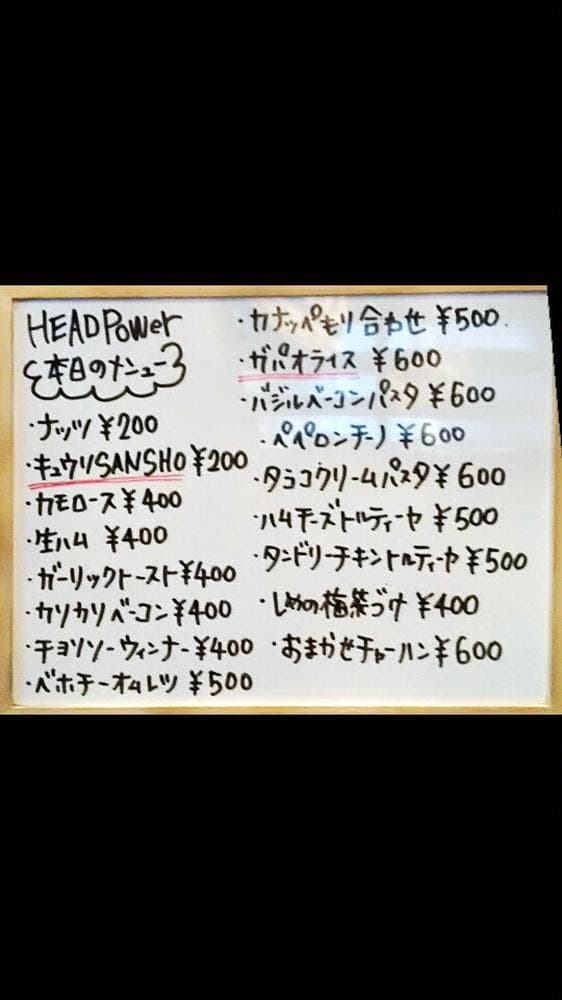 HEADPower
本日のメニュー
・ナッツ ¥200
・キュウリSANSHO ¥200
・カモロース ¥400
・生ハム ¥400
・ガーリックトースト ¥400
・カリカリベーコン ¥400
・チョリソーウィンナー ¥400
・ベホチーオムレツ ¥500
・カナッペもり合わせ ¥500.
・ガパオライス ¥600
・バジルベーコンパスタ ¥600
・ペペロンチーノ ¥600
・タラコクリームパスタ ¥600
・ハムチーズトルティーヤ ¥500
・タンドリーチキントルティーヤ ¥500
・しめの梅茶づけ ¥400
・おまかせチャーハン ¥600